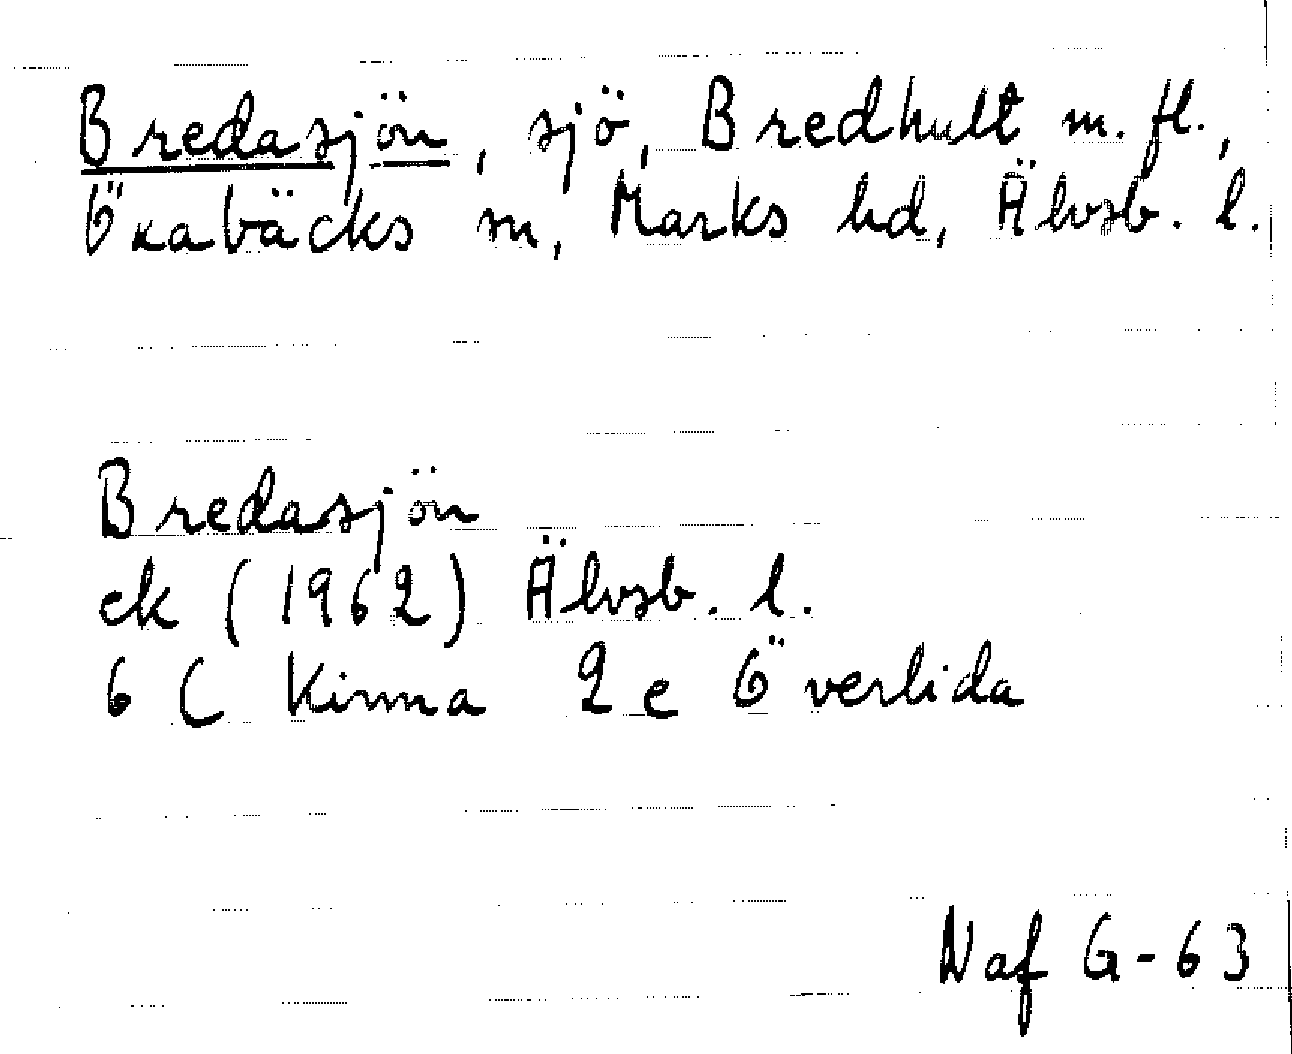 Bredasjön, sjö, Bredhult m. fl.,
Öxabäcks sn, Marks hd, Älvsb. l.
Bredasjön
ek (1962) Älvsb. l.
6 C Kinna 2 e Överlida
Naf G-63